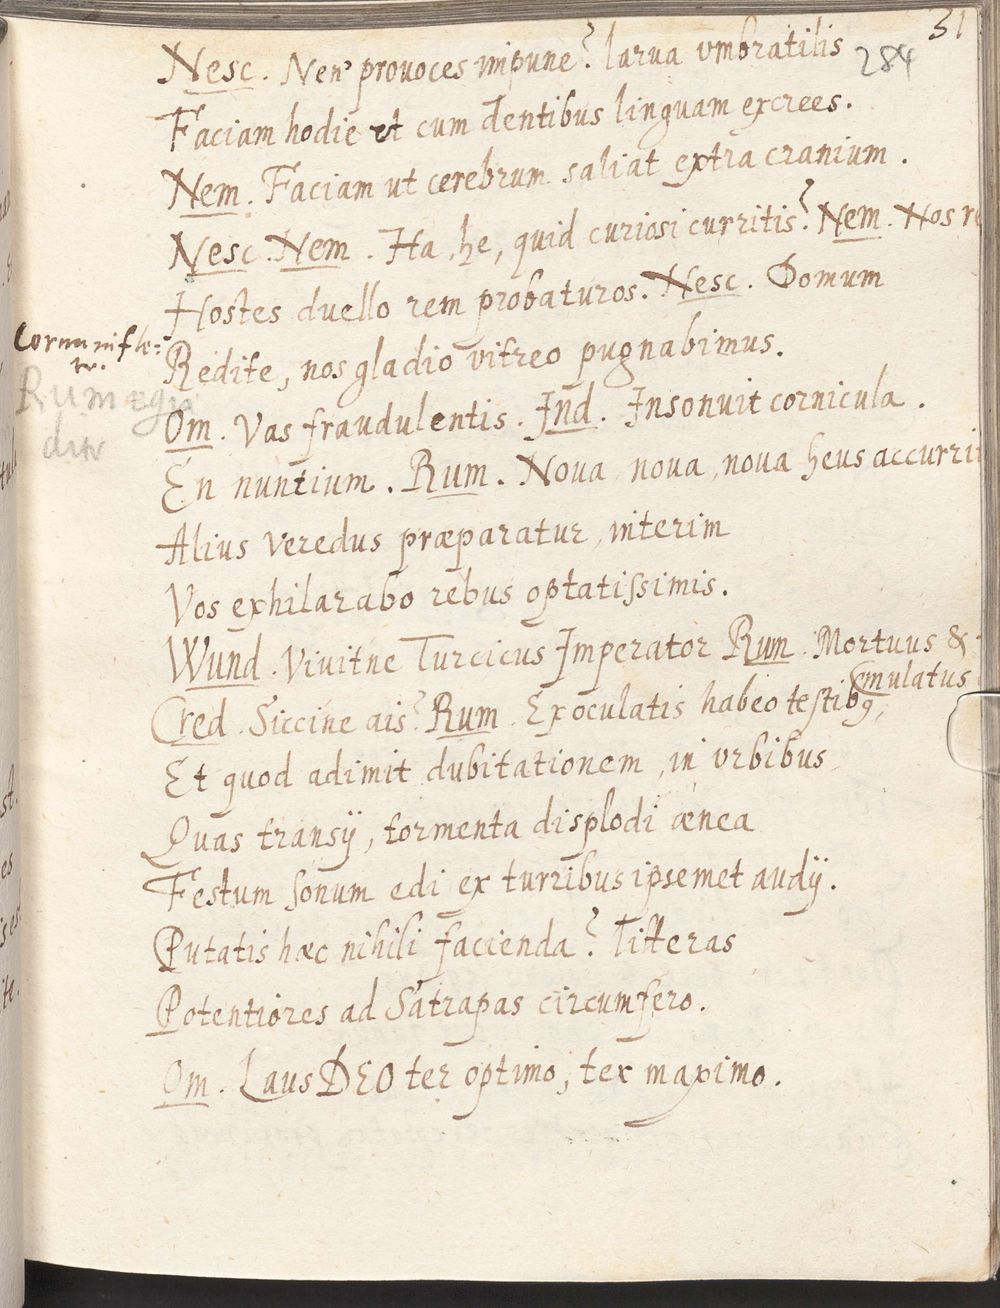 51
284
Nesc. Nen' prouoces impune? larva vmbratilis
Faciam hodie ut cum dentibus linguam excrees.
Nem. Faciam ut cerebrum saliat extra cranium.
Nesc. Nem. Ha, he, quid curiosi curritis? Nem. Nos
Hostes duello rem probaturos. Nesc. Domum
Cornu infla:
tur.
Redite, nos gladio vitreo pugnabimus.
Rum egre
ditur
Om. Vas fraudulentis. Ind. Insonuit cornicula.
En nuntium. Rum. Nova, nova, nova heus accurrit
Alius veredus præparatur, interim
Vos exhilarabo rebus optatissimis.
Wund. Viuitne Turcicus Imperator Rum. Mortuus &
tumulatus
Cred. Siccine ais? Rum. Exoculatis habeo testibq,
Et quod adimit dubitationem, in vrbibus
Quas transij, tormenta displodi ænea
Festum sonum edi ex turribus ipsemet audij.
Putatis hæc nihili facienda? Litteras
Potentiores ad Satrapas circumfero.
Om. Laus DEO ter optimo, ter maximo.